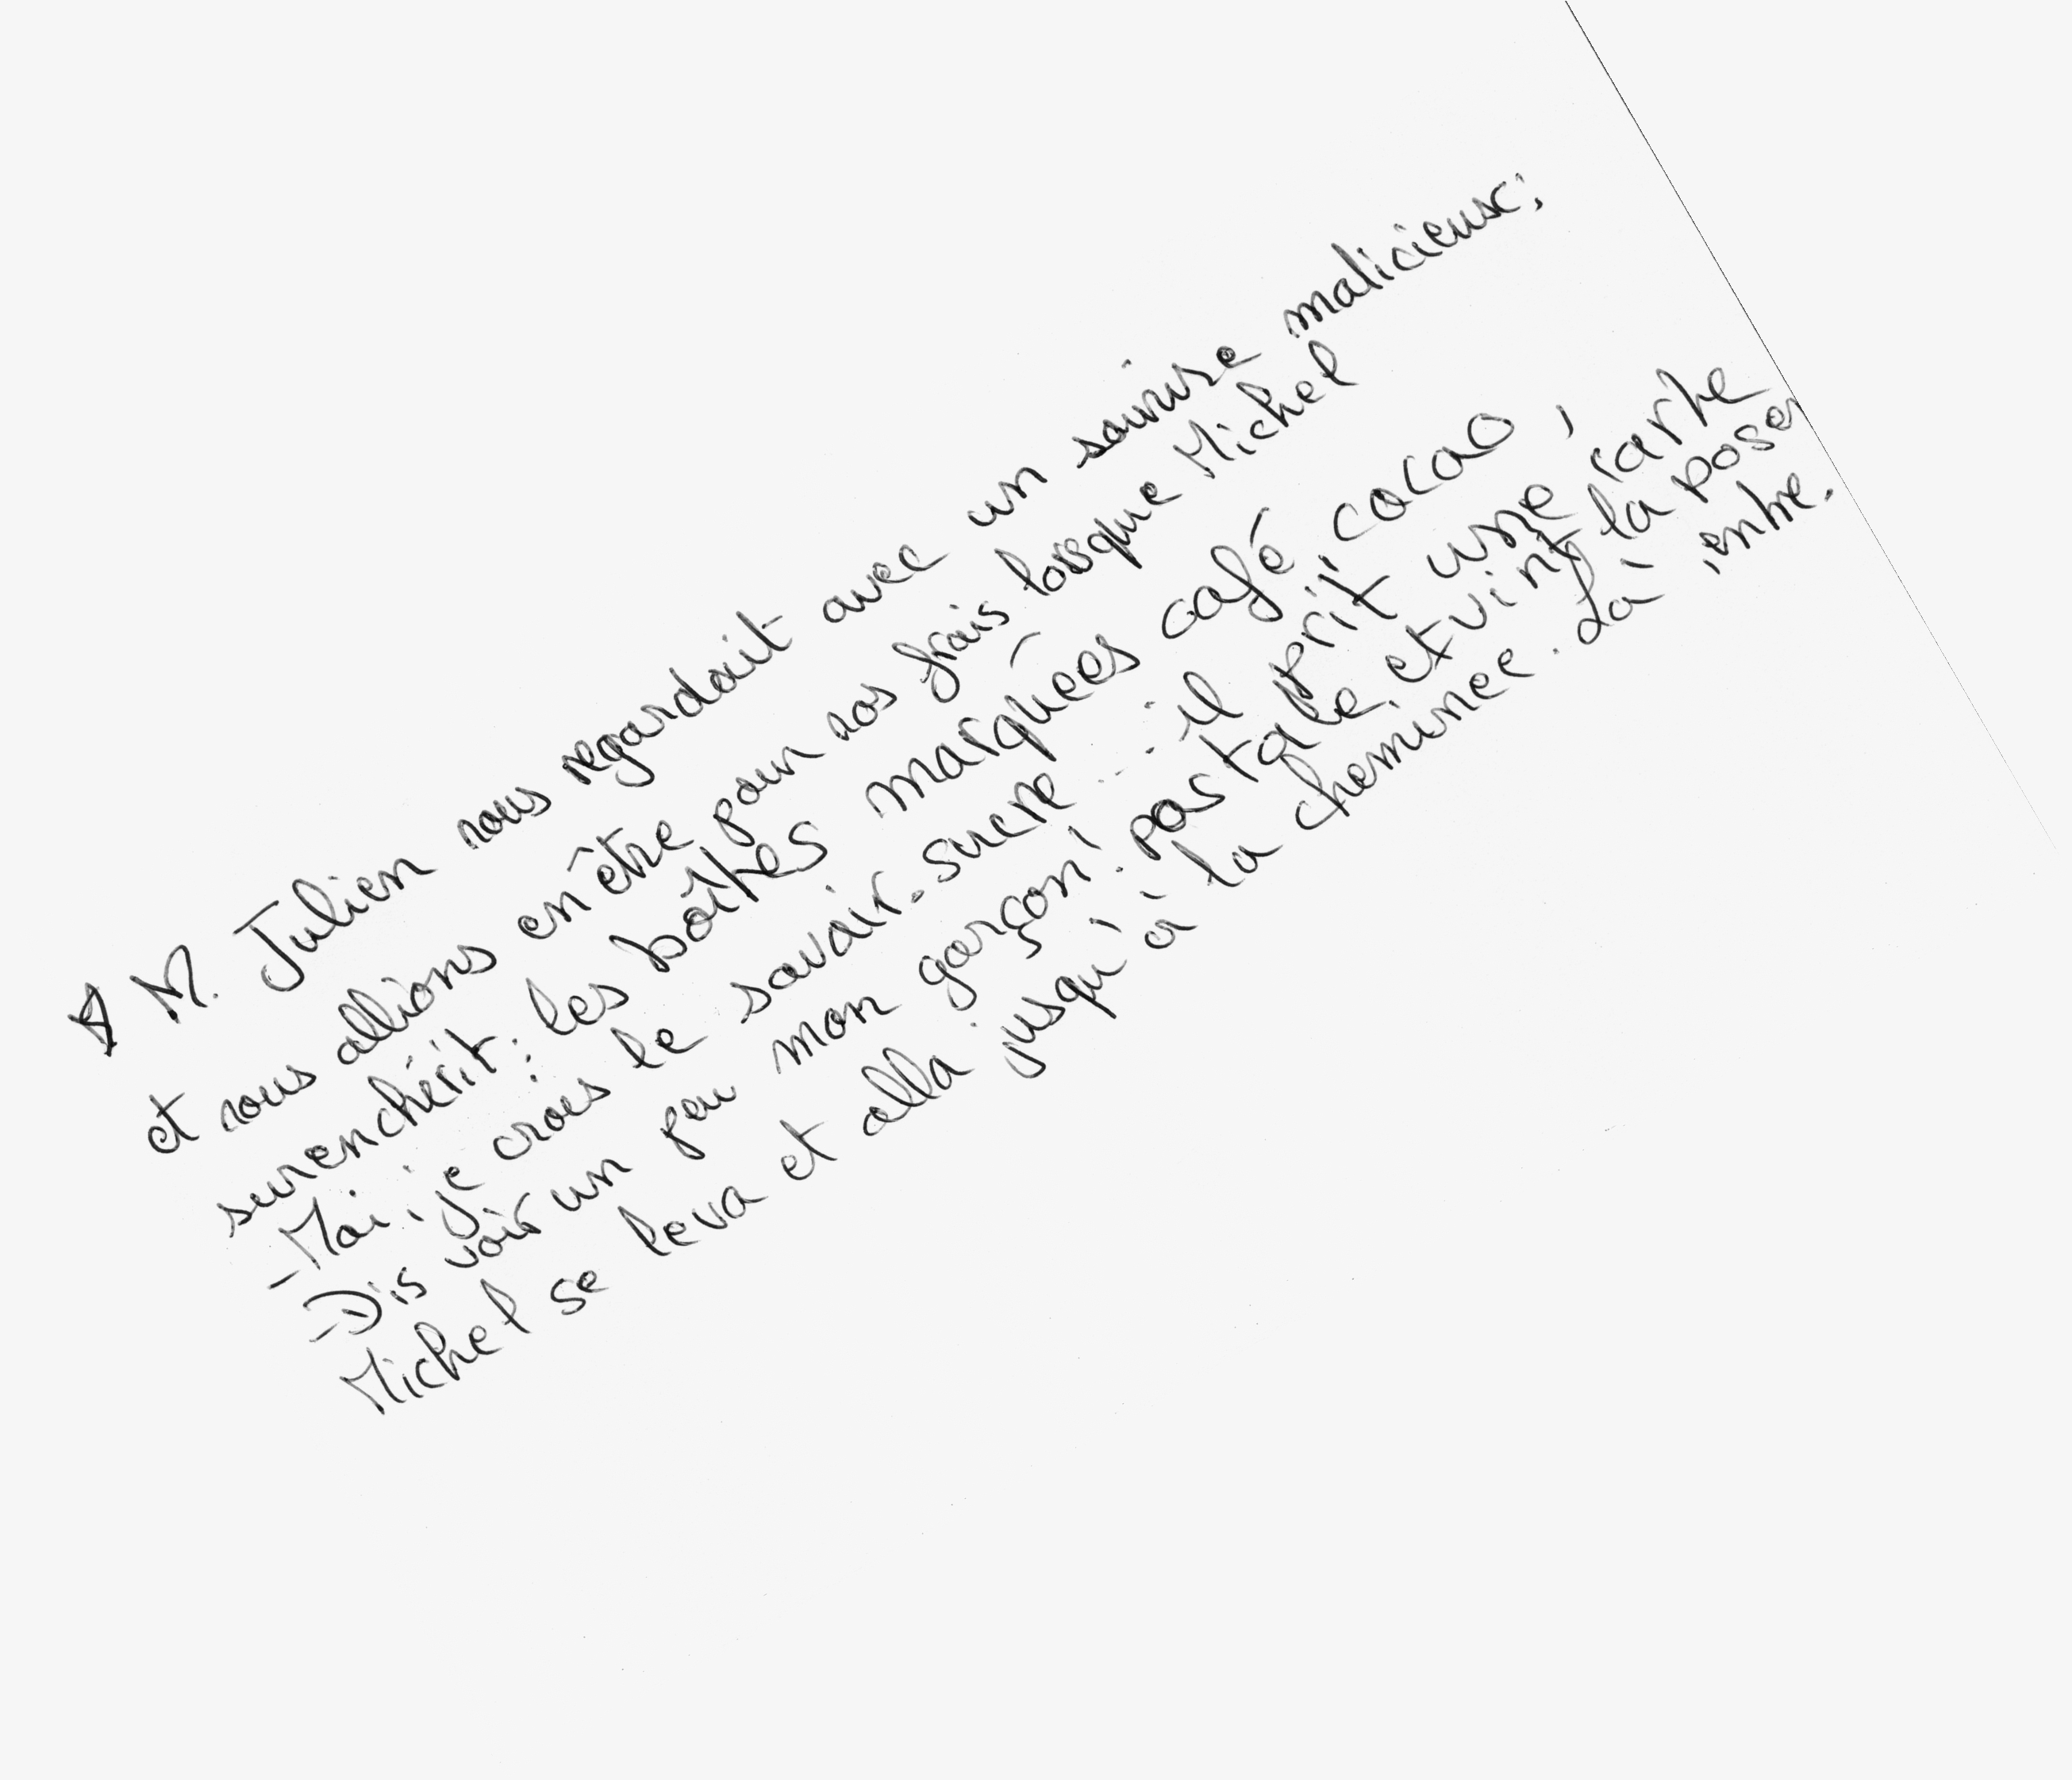 M. Julien nous regardait avec un sourire malicieux;
et nous allions en être pour nos frais lorsque Michel
surenchérit : les boîtes marquées café, cacao,
- Moi, je crois le savoir. sucre ... : il prit une carte
- Dis voir un peu mon garçon! postale, et vint la poser
Michel se leva et alla jusqu'à la cheminée. Là, entre.